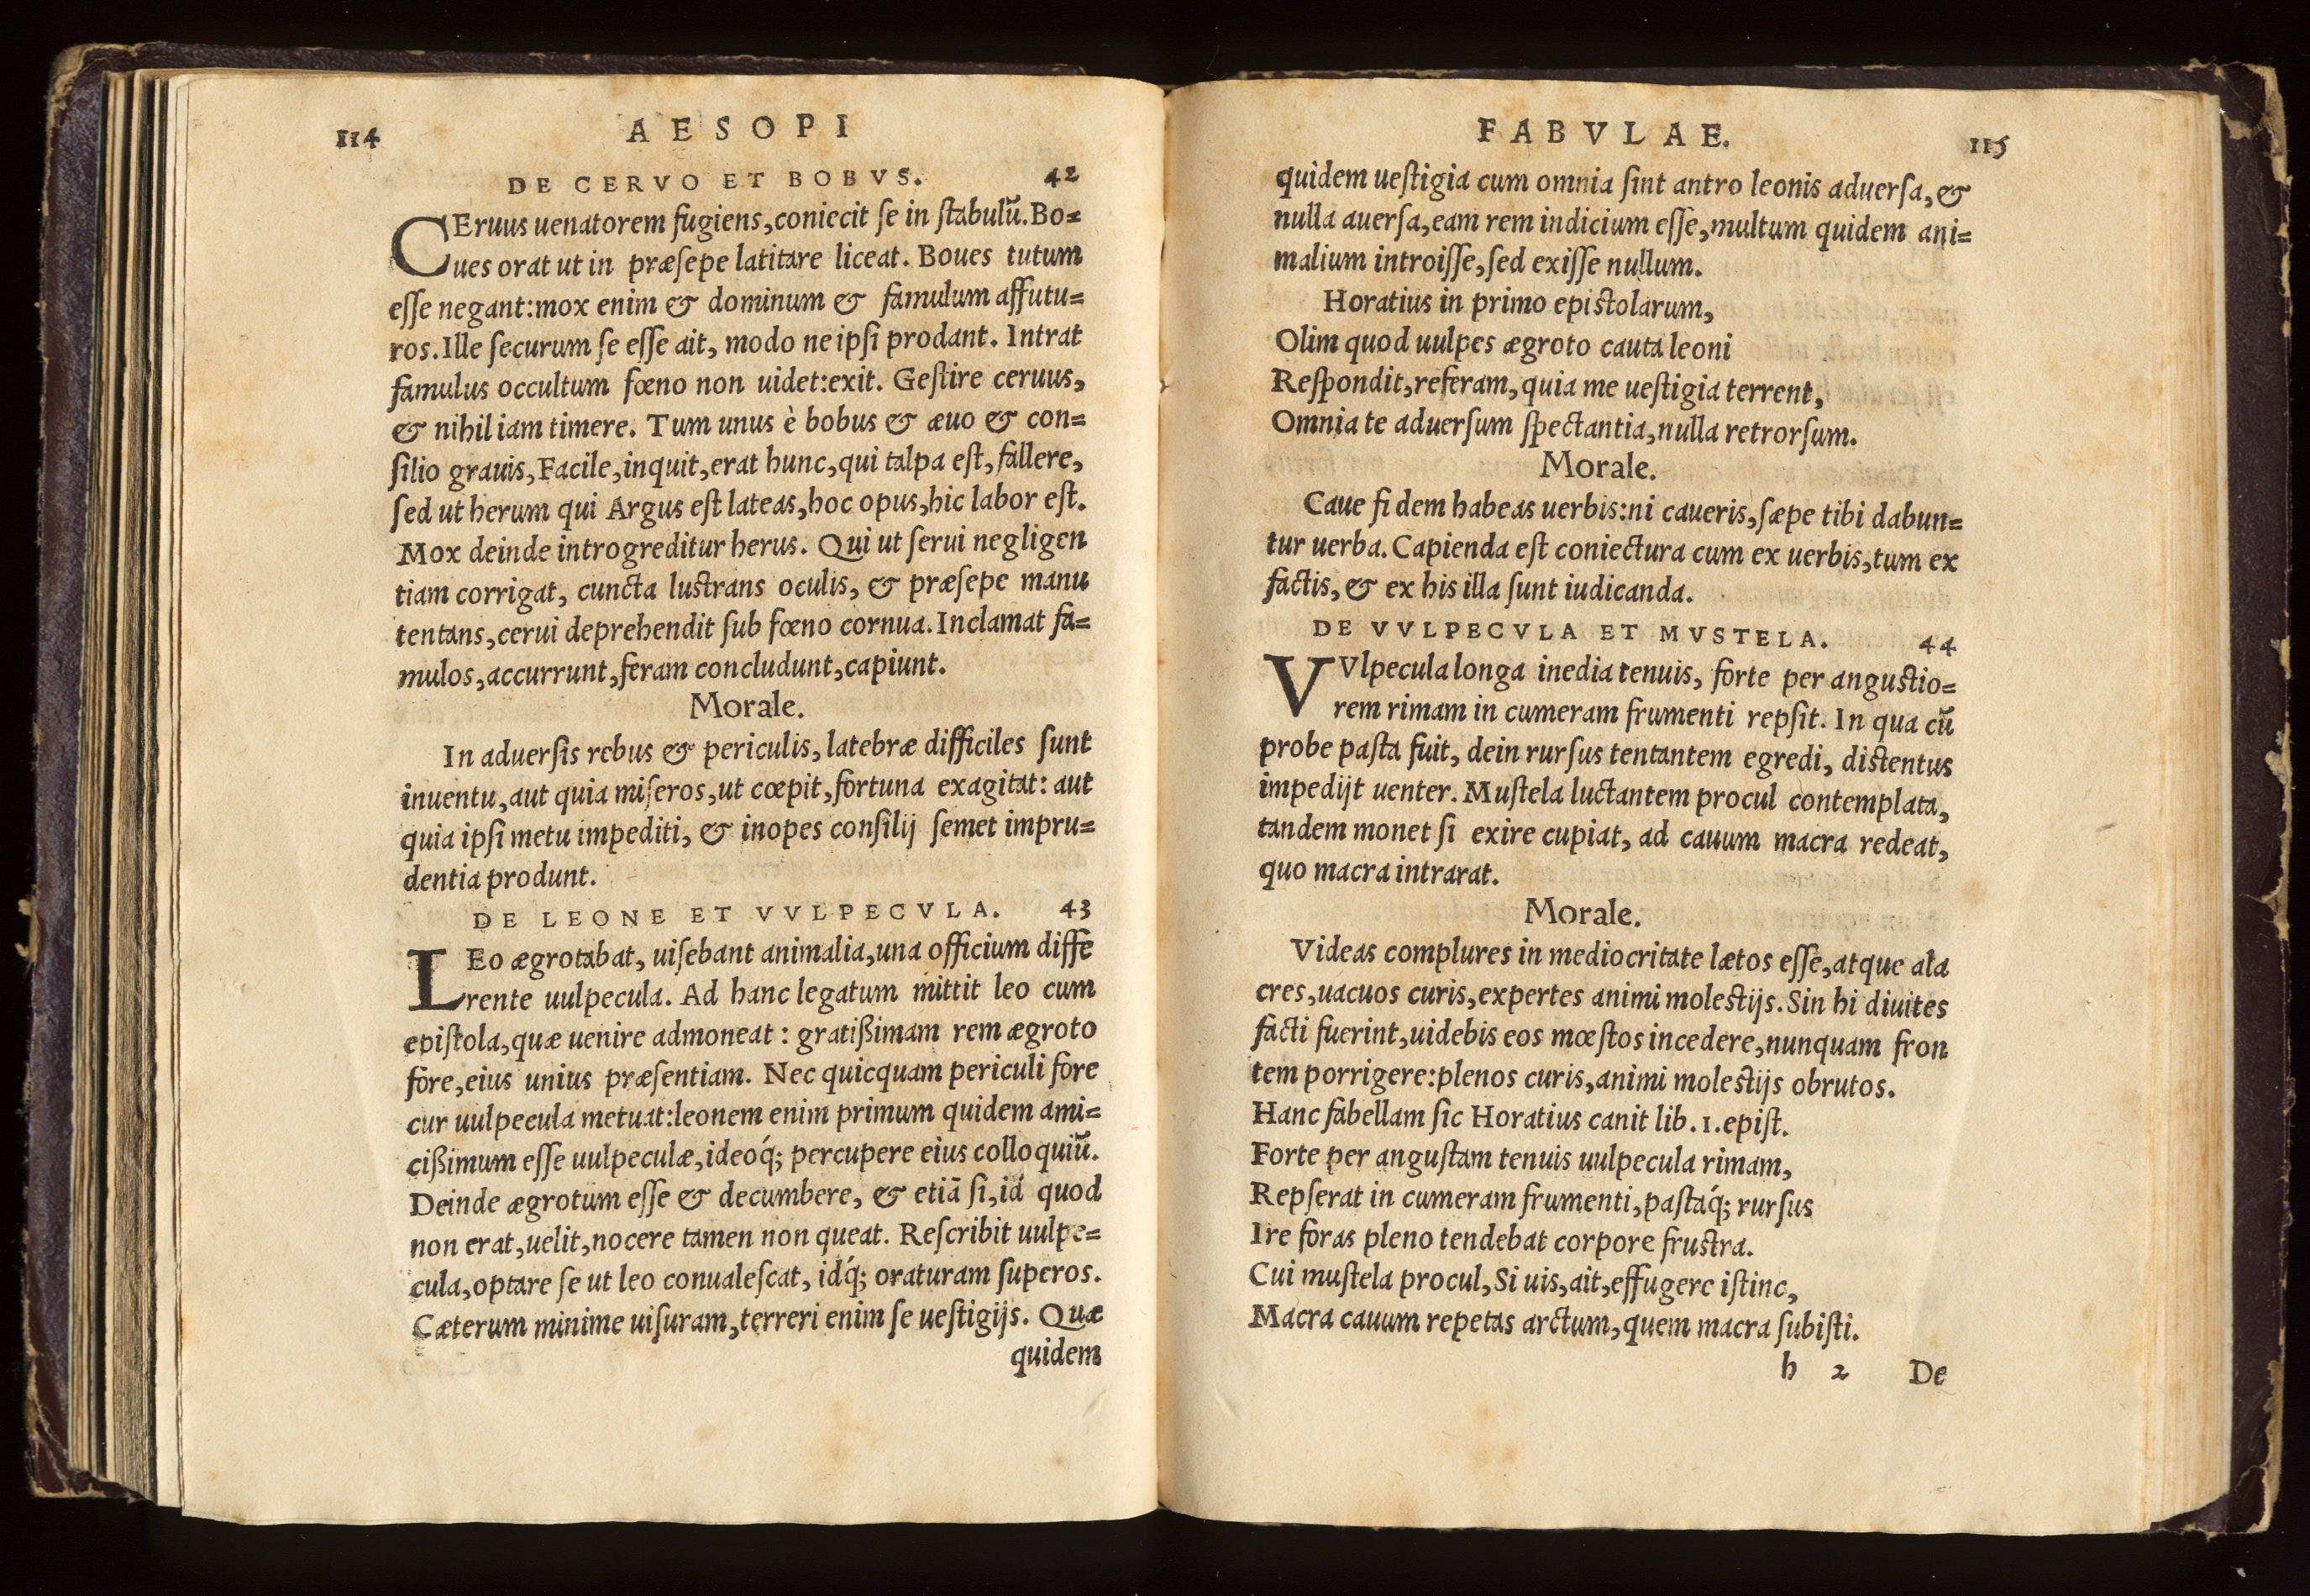 114 AESOPI
DE CERVO ET BOBVS. 42
CEruus uenatorem fugiens, coniecit ſe in ſtabulũ. Bo=
ues orat ut in præſepe latitare liceat. Boues tutum
eſſe negant: mox enim & dominum & famulum affutu=
ros. Ille ſecurum ſe eſſe ait, modo ne ipſi prodant. Intrat
famulus occultum fœno non uidet: exit. Geſtire ceruus,
& nihil iam timere. Tum unus è bobus & æuo & con=
ſilio grauis, Facile, inquit, erat hunc, qui talpa eſt, fallere,
ſed ut herum qui Argus eſt lateas, hoc opus, hic labor eſt.
Mox deinde introgreditur herus. Qui ut ſerui negligen
tiam corrigat, cuncta luſtrans oculis, & præſepe manu
tentans, cerui deprehendit ſub fœno cornua. Inclamat fa=
mulos, accurrunt, feram concludunt, capiunt.
Morale.
In aduerſis rebus & periculis, latebræ difficiles ſunt
inuentu, aut quia miſeros, ut cœpit, fortuna exagitat: aut
quia ipſi metu impediti, & inopes conſilij ſemet impru=
dentia produnt.
DE LEONE ET VVLPECVLA. 43
LEo ægrotabat, uiſebant animalia, una officium diffe
rente uulpecula. Ad hanc legatum mittit leo cum
epiſtola, quæ uenire admoneat: gratißimam rem ægroto
fore, eius unius præſentiam. Nec quicquam periculi fore
cur uulpecula metuat: leonem enim primum quidem ami=
cißimum eſſe uulpeculæ, ideoq́; percupere eius colloquiũ.
Deinde ægrotum eſſe & decumbere, & etiã ſi, id quod
non erat, uelit, nocere tamen non queat. Reſcribit uulpe=
cula, optare ſe ut leo conualeſcat, idq́; oraturam ſuperos.
Cæterum minime uiſuram, terreri enim ſe ueſtigijs. Quæ
quidem
FABVLAE. 115
quidem ueſtigia cum omnia ſint antro leonis aduerſa, &
nulla auerſa, eam rem indicium eſſe, multum quidem ani=
malium introiſſe, ſed exiſſe nullum.
Horatius in primo epiſtolarum,
Olim quod uulpes ægroto cauta leoni
Reſpondit, referam, quia me ueſtigia terrent,
Omnia te aduerſum ſpectantia, nulla retrorſum.
Morale.
Caue fidem habeas uerbis: ni caueris, ſæpe tibi dabun=
tur uerba. Capienda eſt coniectura cum ex uerbis, tum ex
factis, & ex his illa ſunt iudicanda.
DE VVLPECVLA ET MVSTELA. 44
VVlpecula longa inedia tenuis, forte per anguſtio=
rem rimam in cumeram frumenti repſit. In qua cũ
probe paſta fuit, dein rurſus tentantem egredi, diſtentus
impedijt uenter. Muſtela luctantem procul contemplata,
tandem monet ſi exire cupiat, ad cauum macra redeat,
quo macra intrarat.
Morale.
Videas complures in mediocritate lætos eſſe, atque ala
cres, uacuos curis, expertes animi moleſtijs. Sin hi diuites
facti fuerint, uidebis eos mœſtos incedere, nunquam fron
tem porrigere: plenos curis, animi moleſtijs obrutos.
Hanc fabellam ſic Horatius canit lib. 1. epiſt.
Forte per anguſtam tenuis uulpecula rimam,
Repſerat in cumeram frumenti, paſtaq́; rurſus
Ire foras pleno tendebat corpore fruſtra.
Cui muſtela procul, Si uis, ait, effugere iſtinc,
Macra cauum repetas arctum, quem macra ſubiſti.
h 2 De